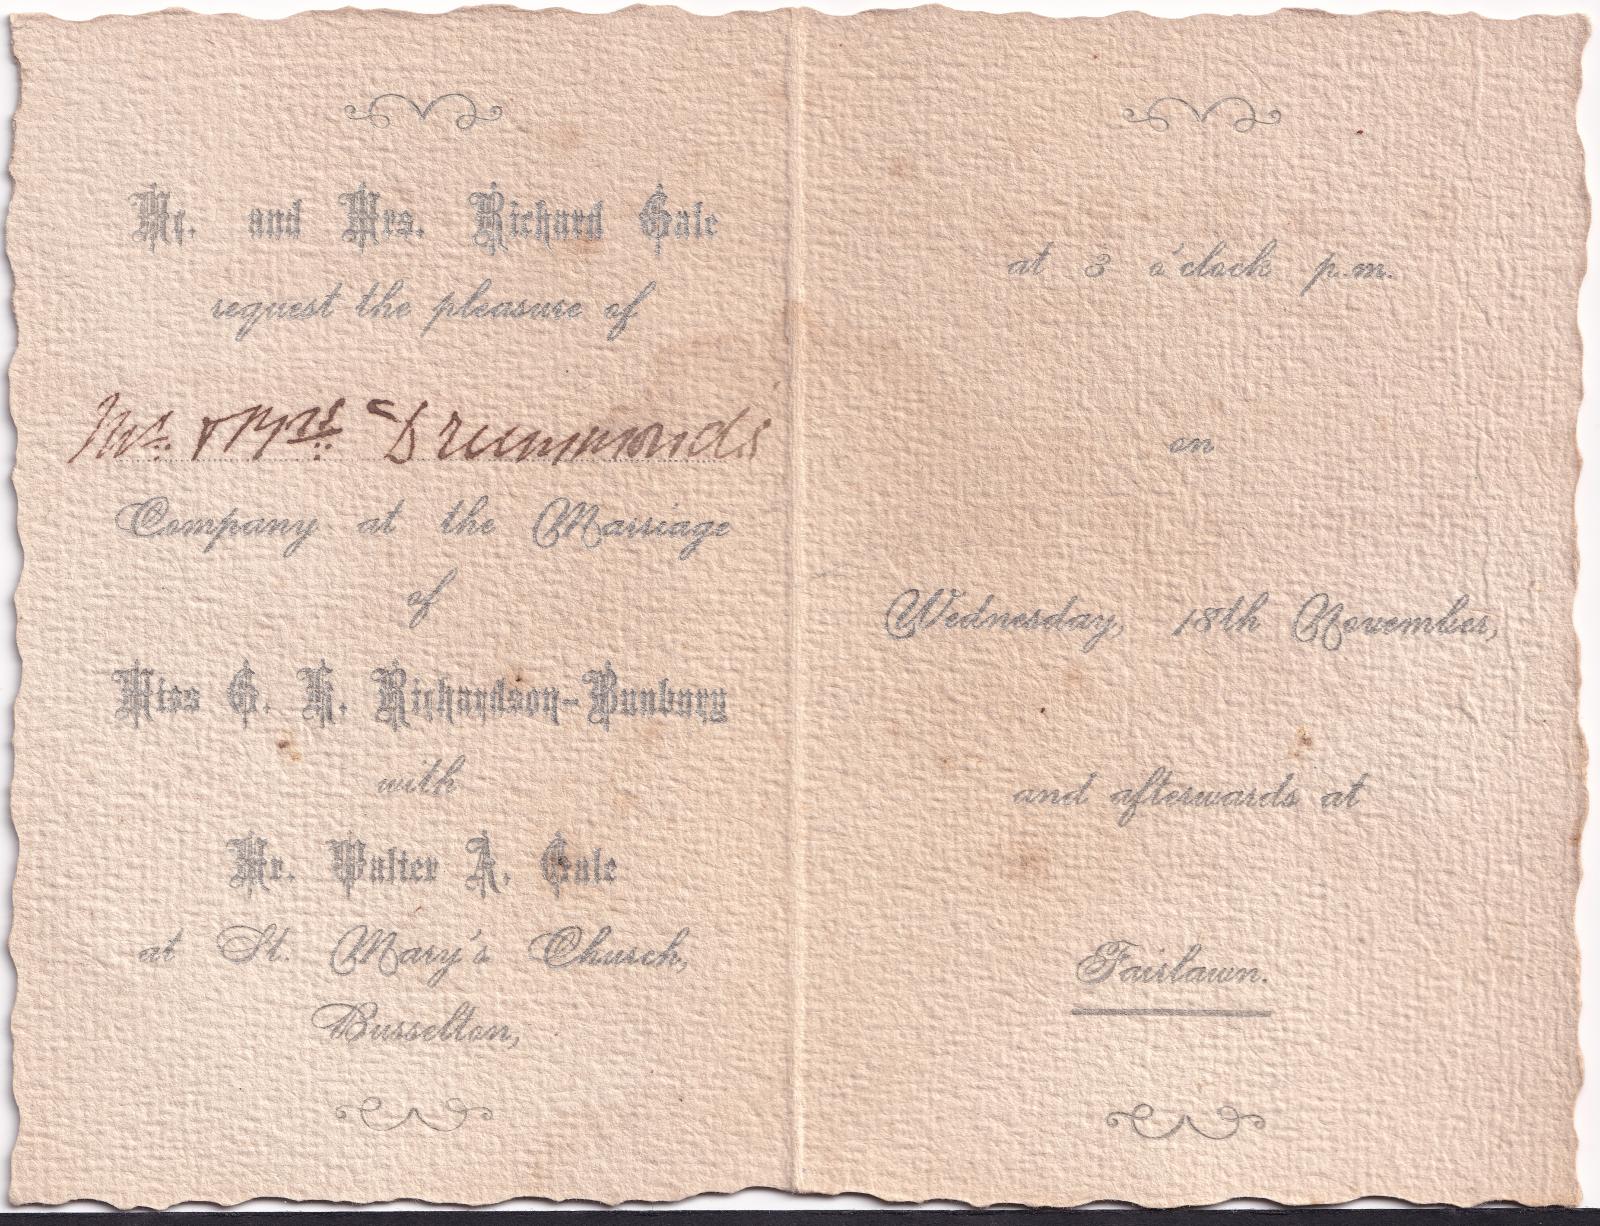 Mr. and Mrs. Richard Gale
request the pleasure of
Mr. & Mrs. Drummond's
Company at the Marriage
of
Miss G. K. Richardson-Bunbury
with
Mr. Walter A. Gale
at St. Mary's Church,
Busselton,
at 3 o'clock p.m.
on
Wednesday, 18th November,
and afterwards at
Fairlawn.